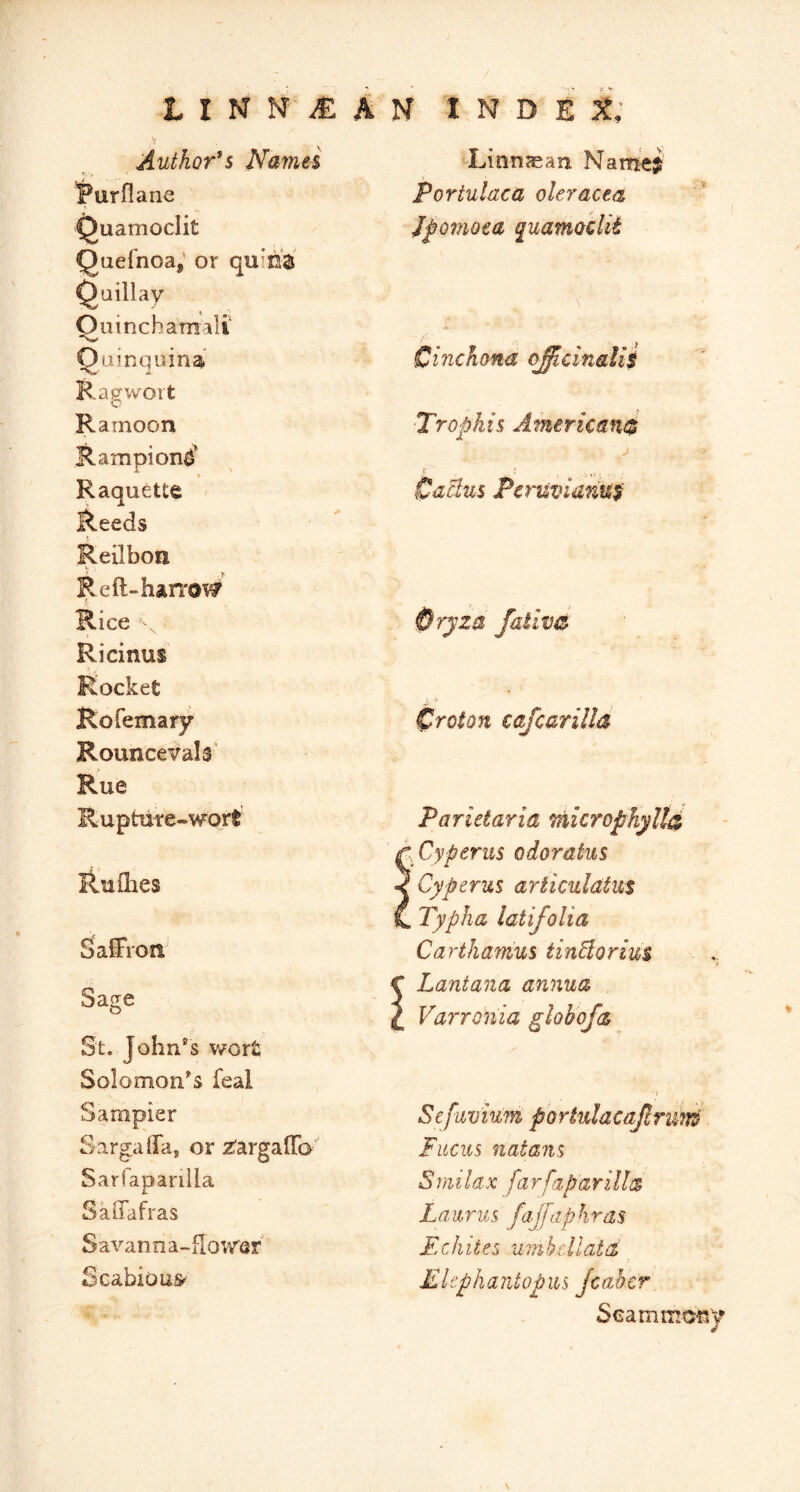 LINNÆAN INDEX.
Author's Names Linnæan Names
Purſlane Portulaca oleracea
Quamoclit Ipomoea quamoclit
Queſnoa, or quina
Quillay
Quinchamali
Quinquina Cinchona officinalis
Ragwort
Ramoon Trophis Americana
Rampions
Raquette Cactus Peruvianus
Reeds
Reilbon
Reſt-harrow
Rice Oryza ſativa
Ricinus
Rocket
Roſemary Croton caſcarilla
Rouncevals
Rue
Rupture-wort Parietaria microphylla
Cyperus odoratus
Ruſhes { Cyperus articulatus
Typha latifolia
Saffron Carthamus tinctorius
Sage { Lantana annua
Varronia globoſa
St. John's wort
Solomon's ſeal
Sampier Seſuvium portulacaſtrum
Sargaſſa, or zargaſſo Fucus natans
Sarſaparilla Smilax ſarſaparilla
Saſſafras Laurus ſaſſaphras
Savanna-flower Echites umbellata
Scabious Elephantopus ſcaber
Scammony